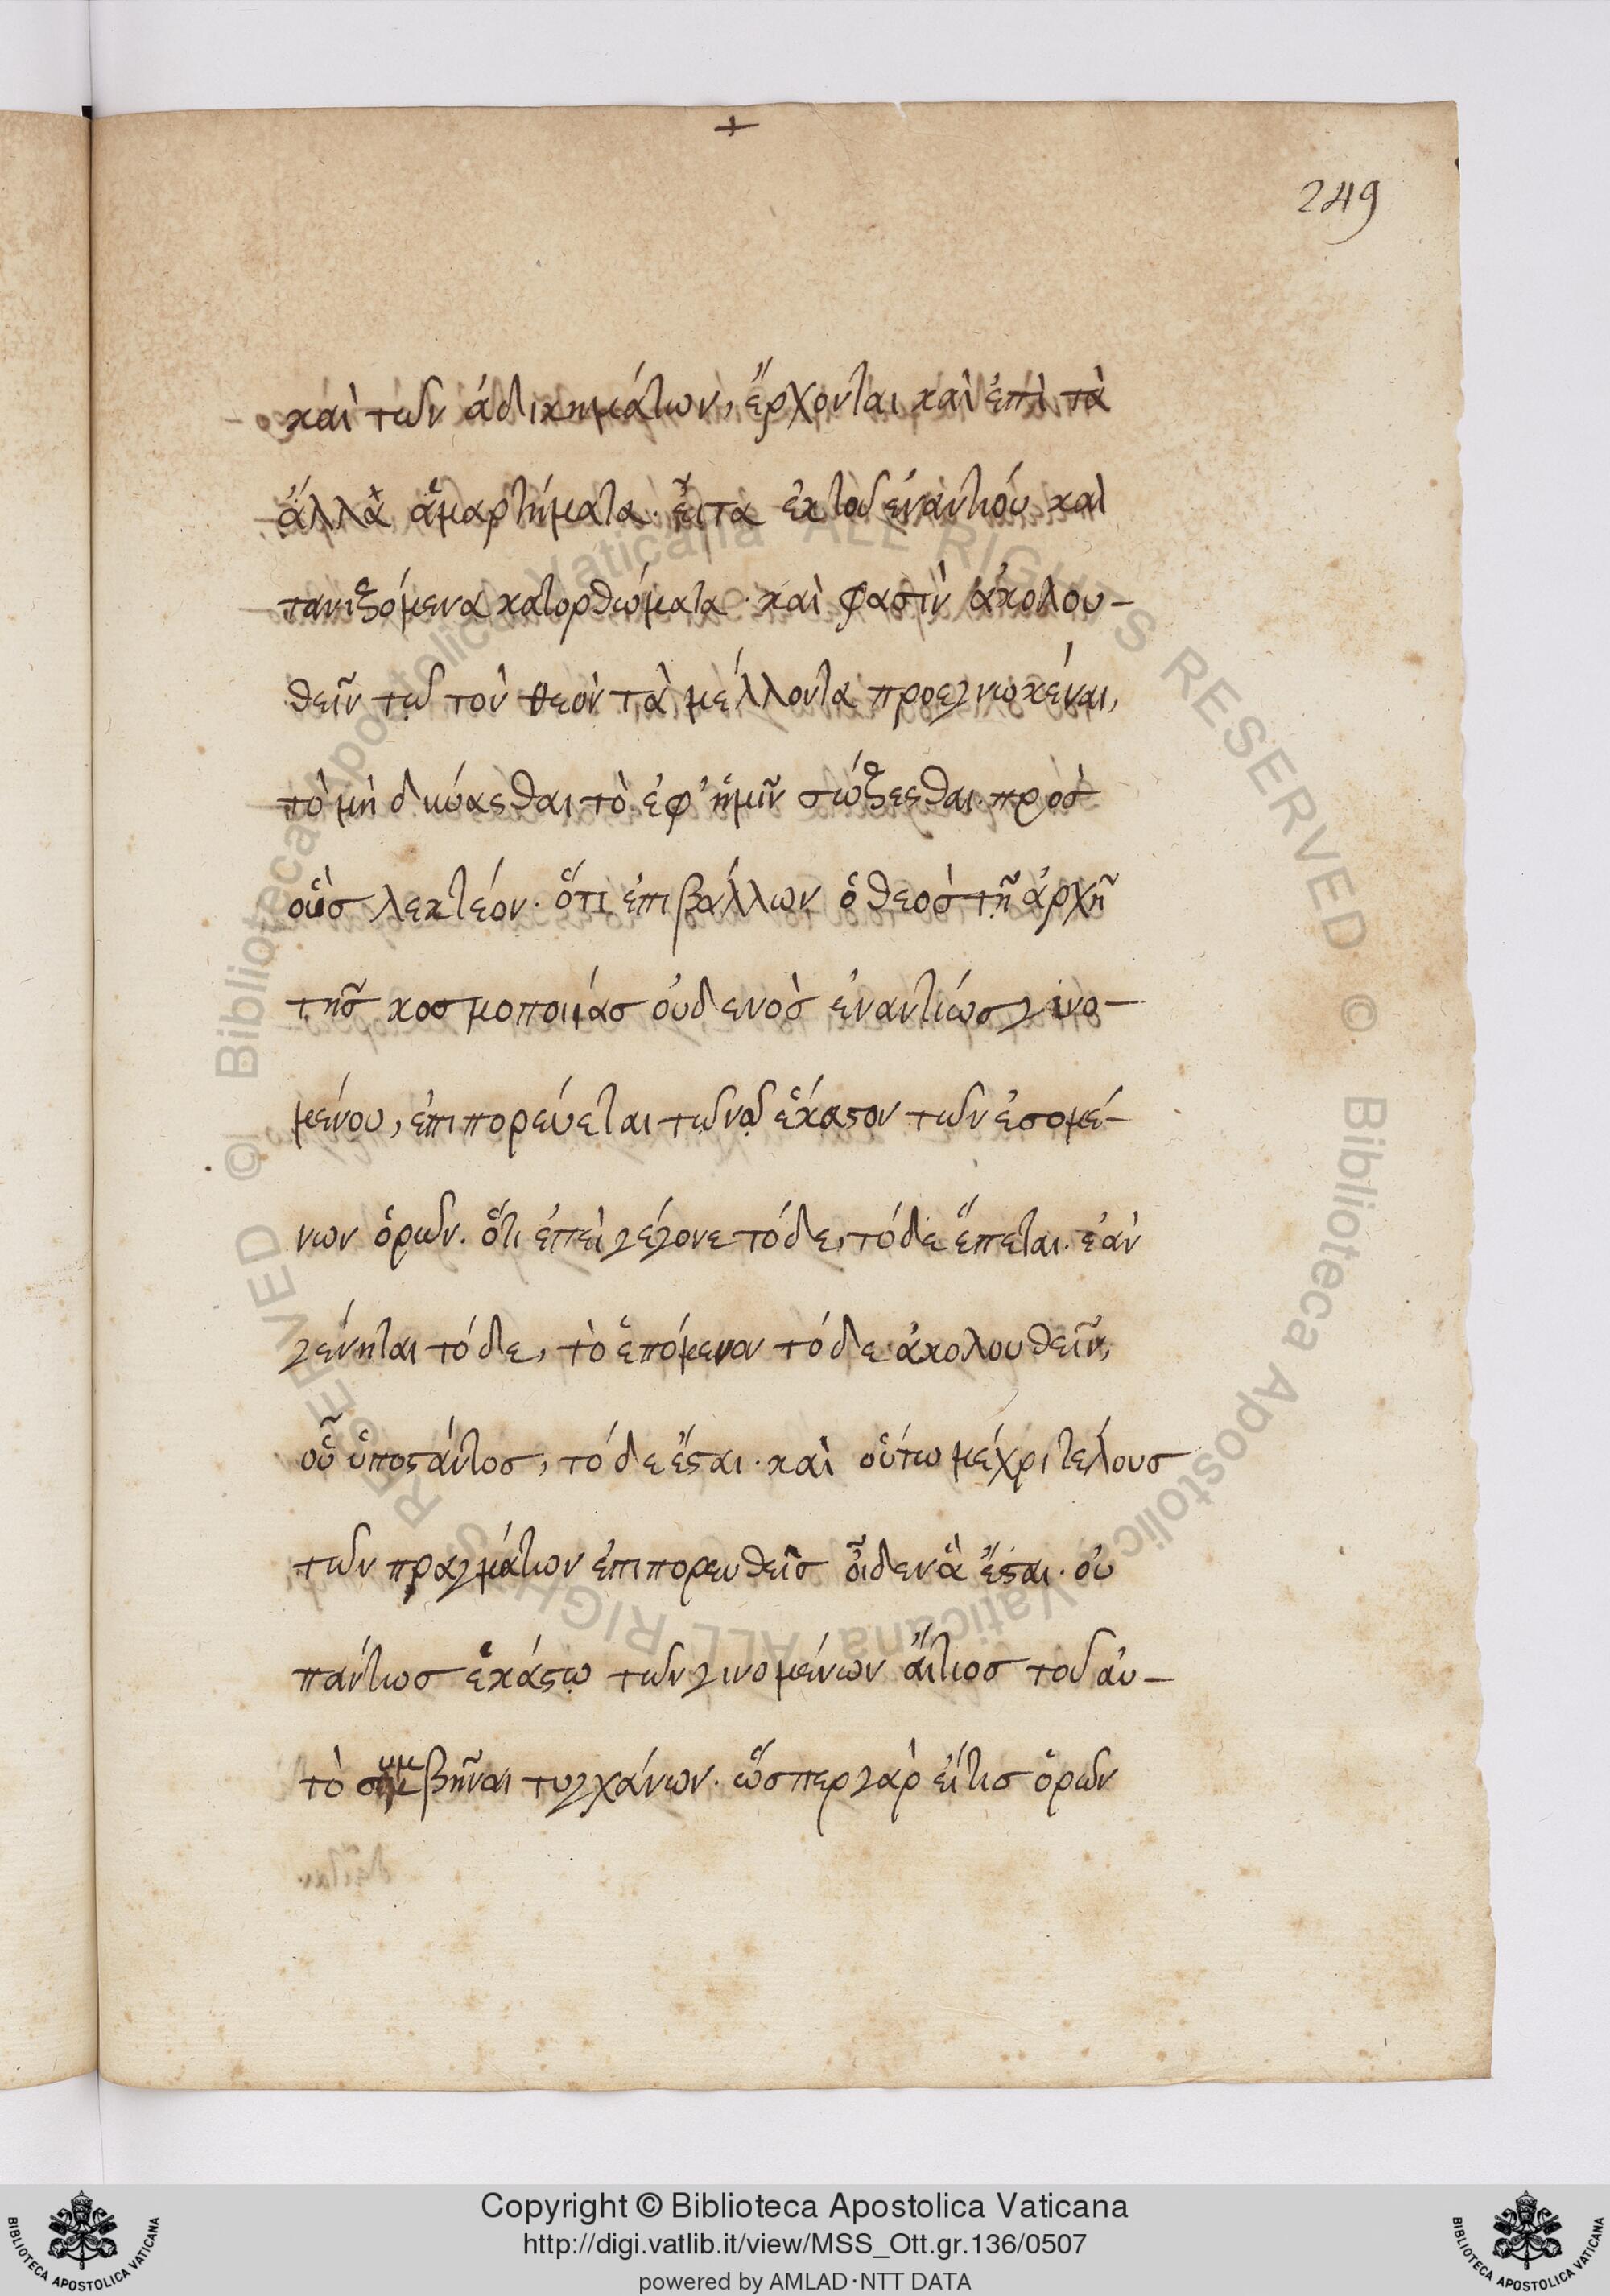 +
249
καὶ τῶν ἀδικημάτων, ἔρχονται καὶ ἐπὶ τὰ
ἄλλα ἁμαρτήματα. εἶτα ἐκ τοῦ ἐναντίου καὶ
τανιζόμενα κατορθώματα. καὶ φασὶν ἀκολου-
θεῖν τῷ τὸν θεὸν τὰ μέλλοντα προεγνωκέναι,
τὸ μὴ δύνασθαι τὸ ἐφ' ἡμῖν σώζεσθαι. πρὸς
οὓς λεκτέον. ὅτι ἐπιβάλλων ὁ θεὸς τῇ ἀρχῇ
τῆς κοσμοποιΐας οὐδενὸς ἐναντίως γινο-
μένου, ἐπιπορεύεται τῷ νῷ ἕκαστον τῶν ἐσομέ-
νων ὁρῶν. ὅτι ἐπεὶ γέγονε τόδε, τόδε ἕπεται. ἐὰν
γένηται τόδε, τὸ ἑπόμενον τόδε ἀκολουθεῖν,
οὗ ὑποστάντος, τόδε ἔσται. καὶ οὕτω μέχρι τέλους
τῶν πραγμάτων ἐπιπορευθεὶς οἶδεν ἃ ἔσται. οὐ
πάντως ἑκάστῳ τῶν γινομένων αἴτιος τοῦ αὐ-
τὸ συμβῆναι τυγχάνων. ὥσπερ γὰρ εἴ τις ὁρῶν
© Biblioteca Apostolica Vaticana ALL RIGHTS RESERVED © Biblioteca Apostolica Vaticana ALL RIGHTS RESERVED
Copyright © Biblioteca Apostolica Vaticana
http://digi.vatlib.it/view/MSS_Ott.gr.136/0507
powered by AMLAD·NTT DATA
BIBLIOTECA APOSTOLICA VATICANA
BIBLIOTECA APOSTOLICA VATICANA